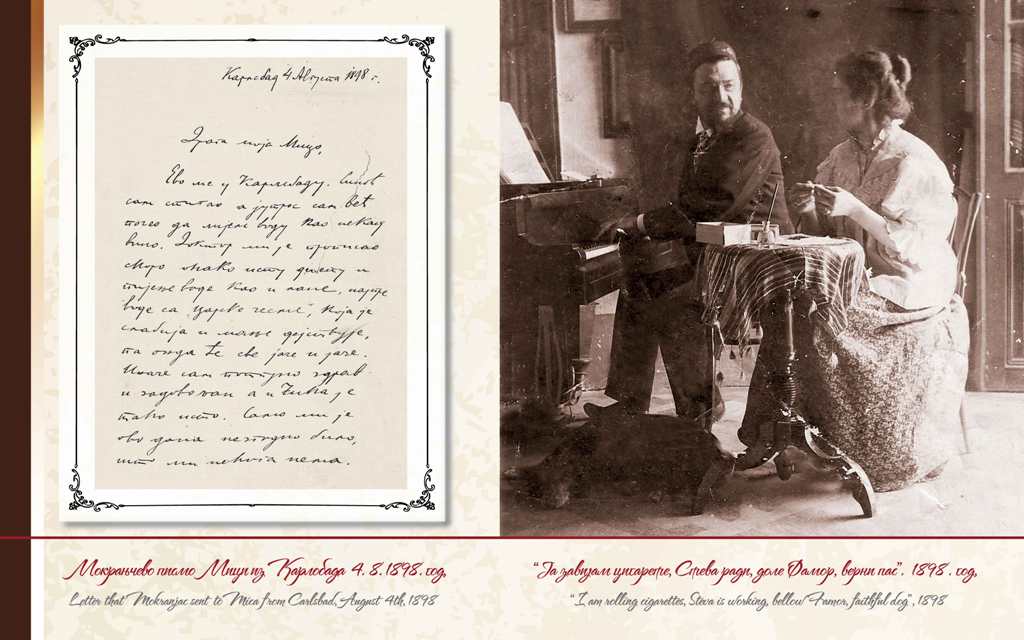 Карлсбад 4 Августа 1898 г.
Драга моја Мицо,
Ево ме у Карлсбаду. Синоћ
сам стигао а јутрос сам већ
почео да пијем воду као некад
вино. Доктор ми је прописао
скоро онако исту дијету и
пијење воде као и лане, најпре
воде са „царске чесме“, која је
слабија и мање дејствује,
па онда ће све јаче и јаче.
Иначе сам потпуно здрав
и задовољан а и Јинка је
тако исто. Само ми је
ово дана незгодно било,
што ми некога нема.
Мокрањчево писмо Мици из Карлсбада 4. 8. 1898. год.
Letter that Mokranjac sent to Mica from Carlsbad, August 4th, 1898
“Ја завијам цигарете, Стева ради, доле Фамор, верни пас”. 1898. год.
“I am rolling cigarettes, Steva is working, bellow Famor, faithful dog”, 1898